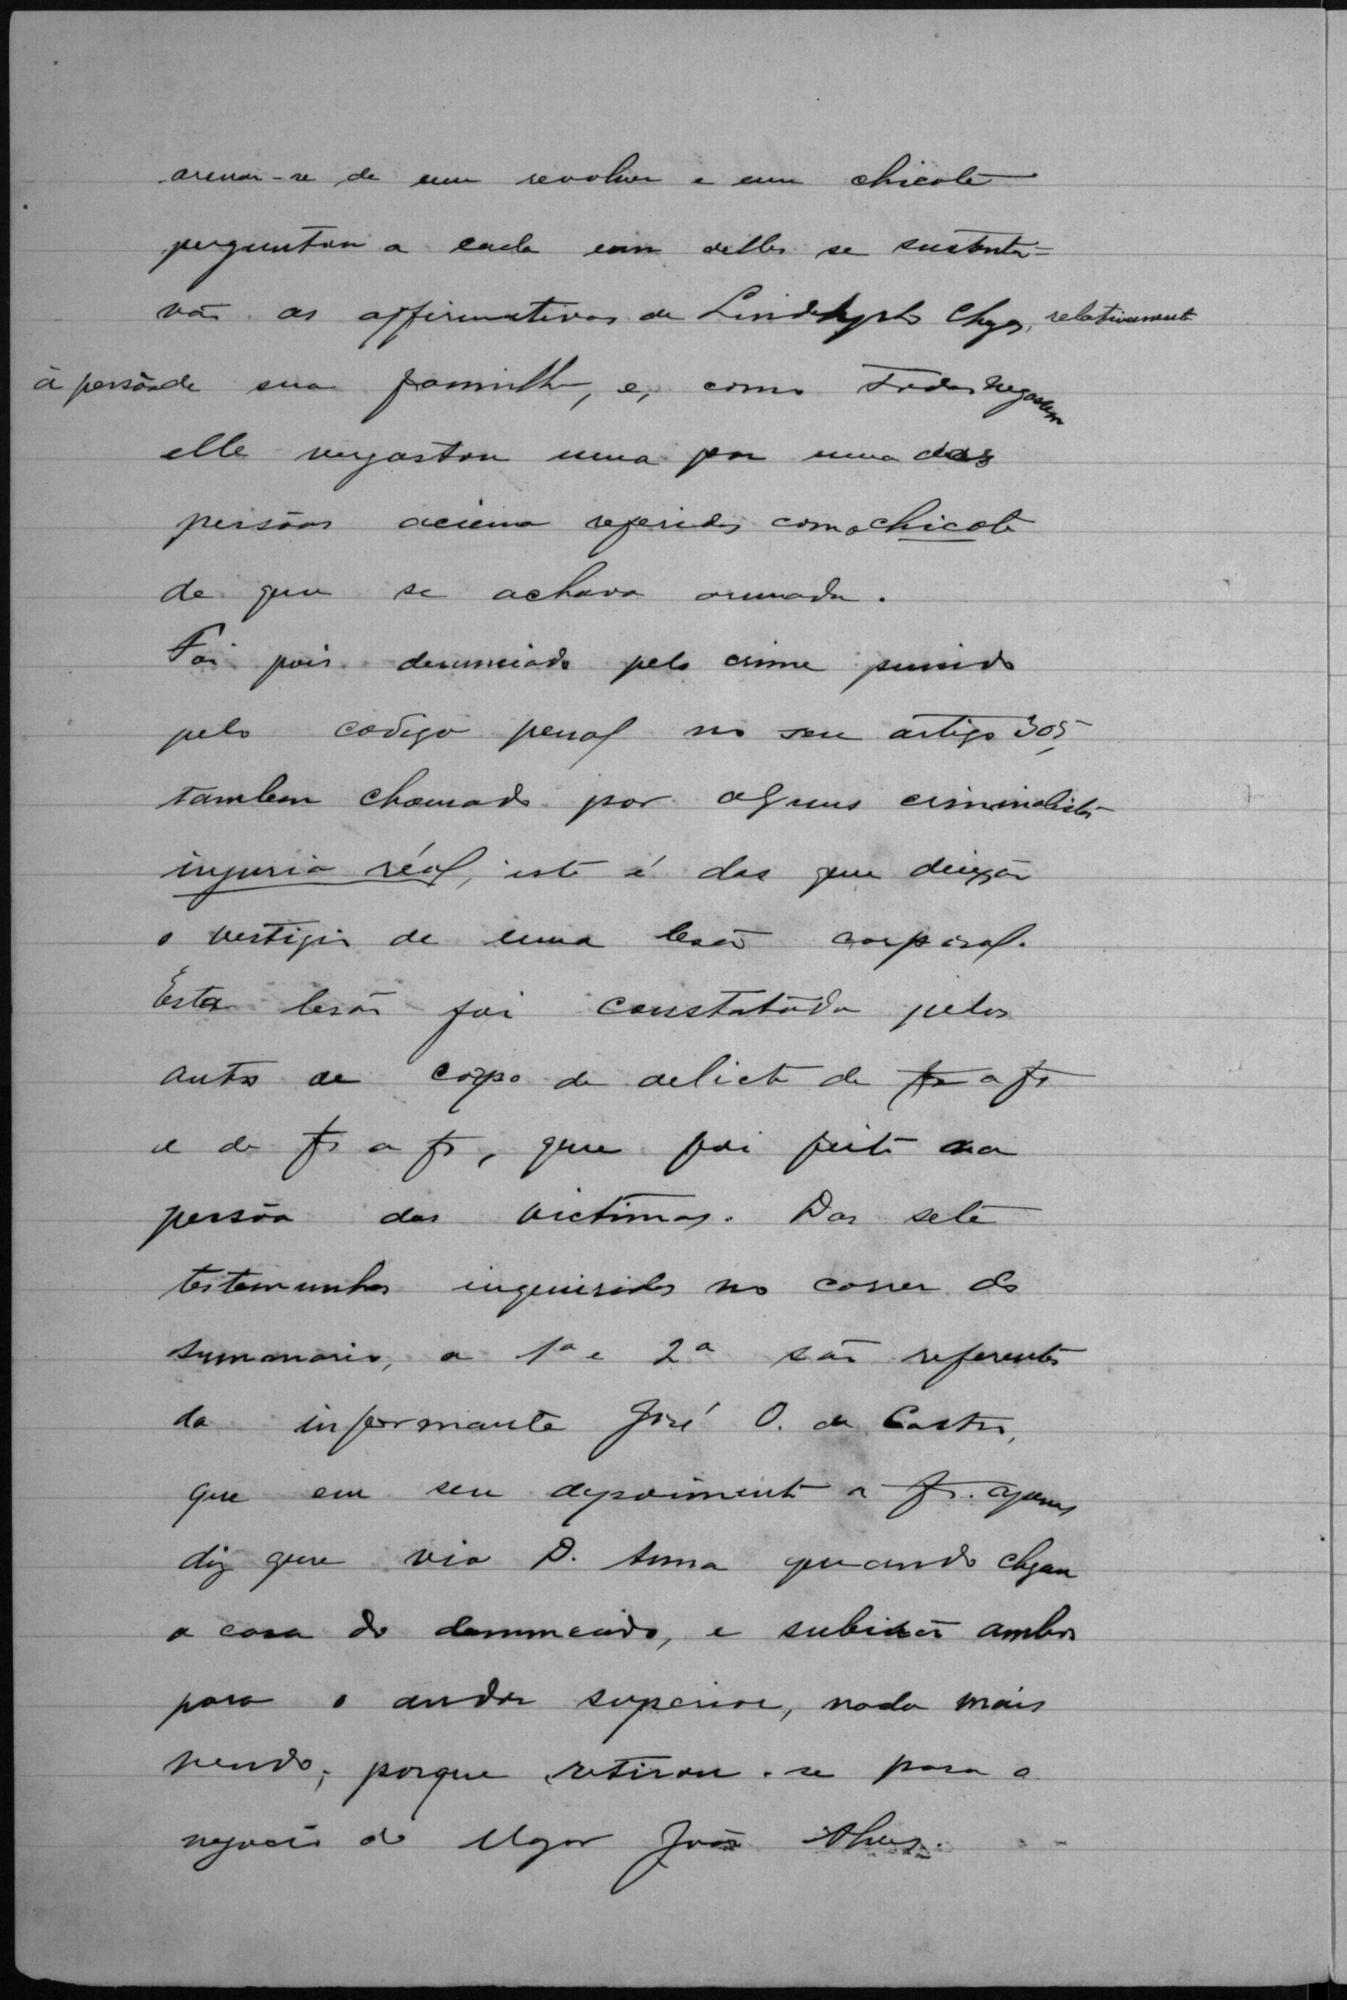 armou-se de um revolver e um chicote
perguntou a cada um delles se sustenta-
vão as affirmativas de Chagas, relativamente
á pessôa de sua familia, e, como todos negassem
elle vergastou uma por uma das
pessôas acima referidas com o chicote
de que se achava armado.
Foi pois denunciado pelo crime punido
pelo codigo penal no seu artigo 305,
tambem chamado por alguns criminalistas
injuria réal, isto é das que deixão
o vestigio de uma lesão corporal.
Esta lesão foi constatada pelos
autos de corpo de delicto de fs a fs
e de fs a fs, que foi feito na
pessôa das victimas. Das sete
testemunhas inqueridas no correr do
summario, a 1ª e 2ª são referentes
da informante José O. de Castro,
que em seu depoimento a fs. apenas
diz que vio D. Anna quando chegou
a casa do denunciado, e subirão ambos
para o andar superior, nada mais
vendo, porque retirou-se para o
negocio do Major João Alves.